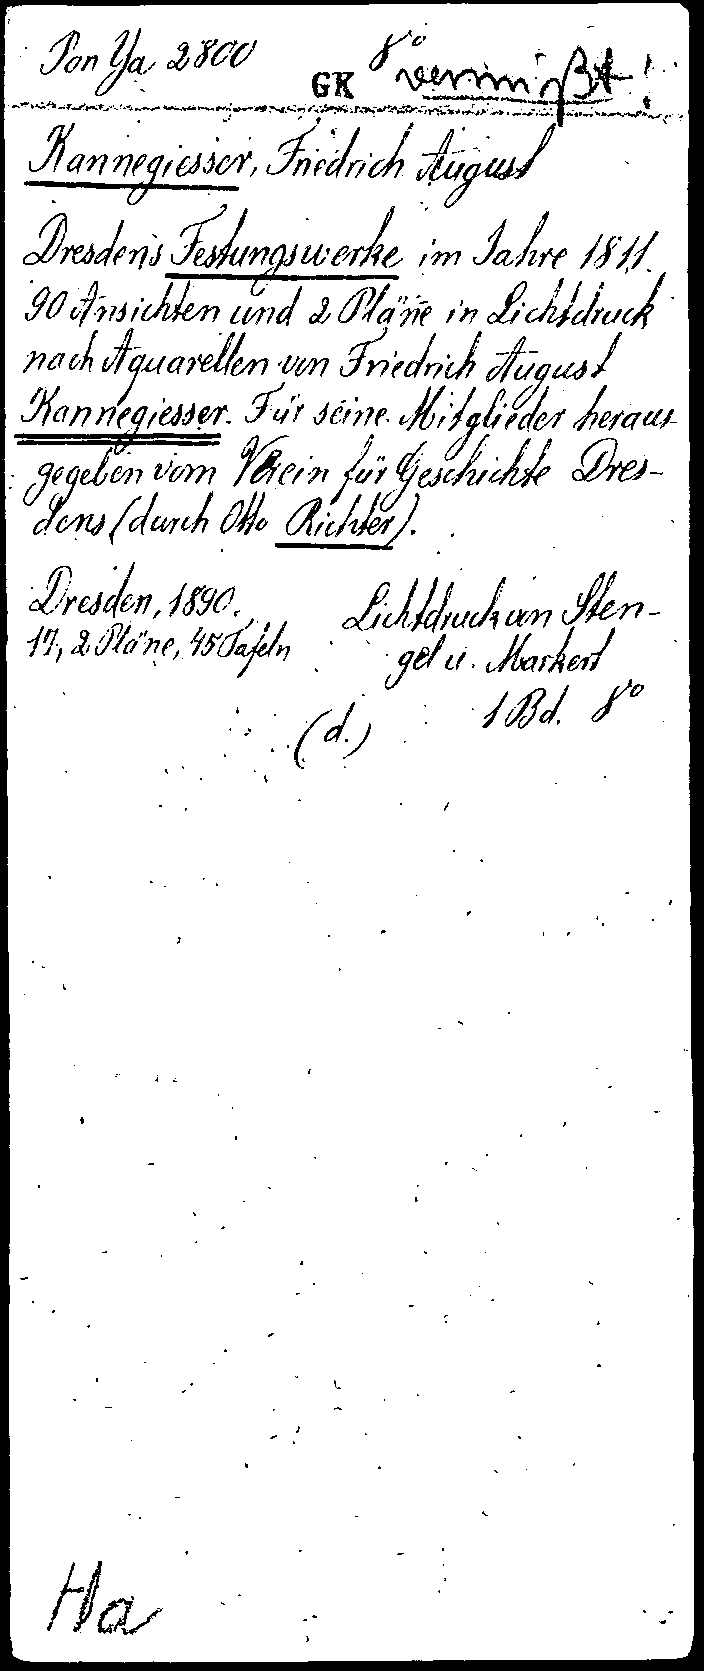 Pon Ya 2800 8° vermißt!
GK
Kannegiesser, Friedrich August
Dresden's Festungswerke im Jahre 1811.
90 Ansichten und 2 Pläne in Lichtdruck
nach Aquarellen von Friedrich August
Kannegiesser. Für seine Mitglieder heraus-
gegeben vom Verein für Geschichte Dres-
dens (durch Otto Richter).
Dresden, 1890. Lichtdruck von Sten-
17, 2 Pläne, 45 Tafeln gel u. Markert
1 Bd. 8°
(d.)
Ha